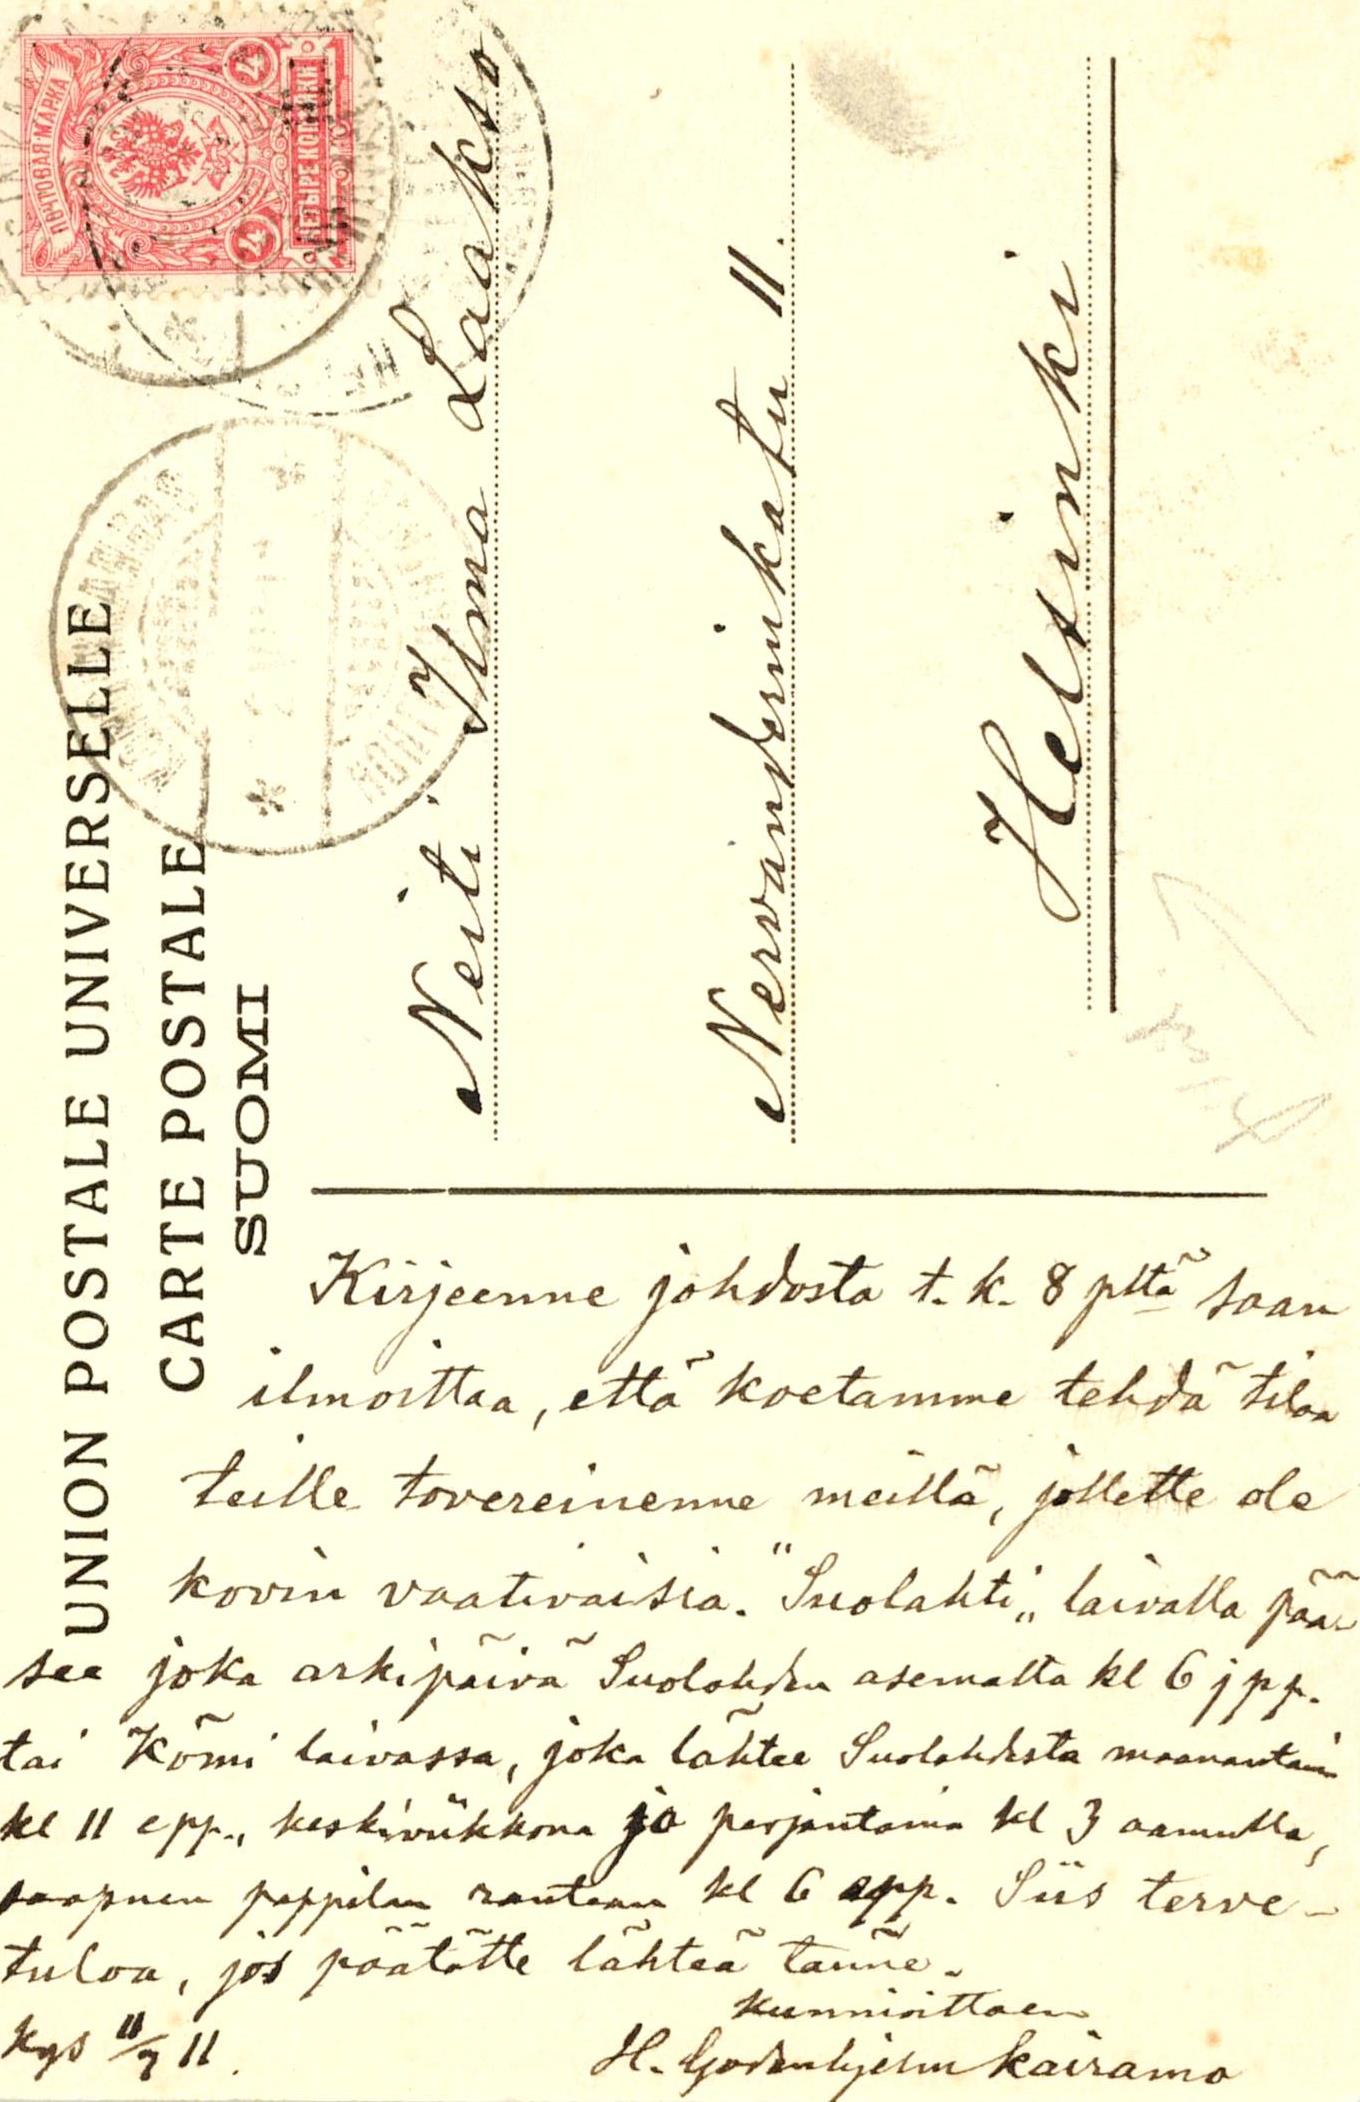 UNION POSTALE UNIVERSELLE
CARTE POSTALE
SUOMI
ПОЧТОВАЯ МАРКА
4 4
ЧЕТЫРЕ КОПѢЙКИ
Neiti Ilma Laakso
Nervanderinkatu 11.
Helsinki
Kirjeenne johdosta t. k. 8 pltä saan
ilmoittaa, että koetamme tehdä tilaa
teille tovereinenne meillä, jollette ole
kovin vaativaisia. "Suolahti" laivalla pää-
see joka arkipäivä Suolahden asemalta kl 6 jpp.
tai Kömi laivassa, joka lähtee Suolahdesta maanantain
kl 11 epp., keskiviikkona ja perjantaina kl 3 aamulla,
saapuen pappilan rantaan kl 6 epp. Siis terve-
tuloa, jos päätätte lähteä tänne.
kunnioittaen
H. Godenhjelm Kairamo
Kgs 11/7 11.